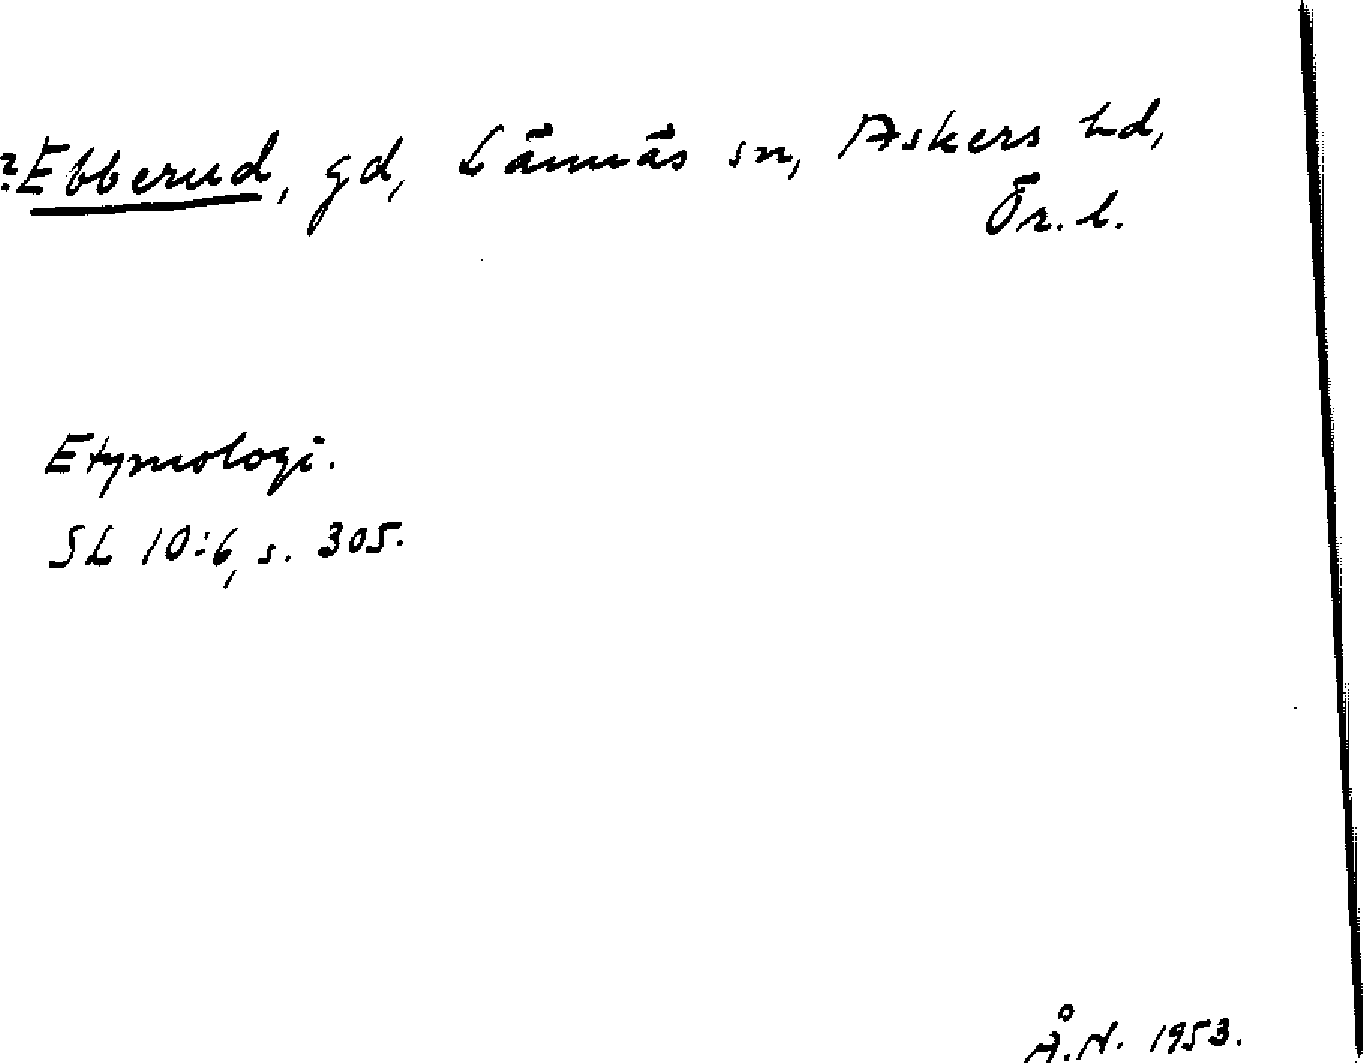 ?Ebberud, gd, Lännäs sn, Askers hd,
Ör. l.
Etymologi.
SL 10:6, s. 305.
Å.N. 1953.